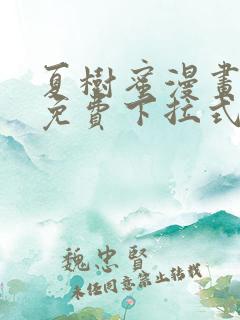 夏樹蜜漫畫
免費下拉式
魏忠賢
未经同意禁止转载